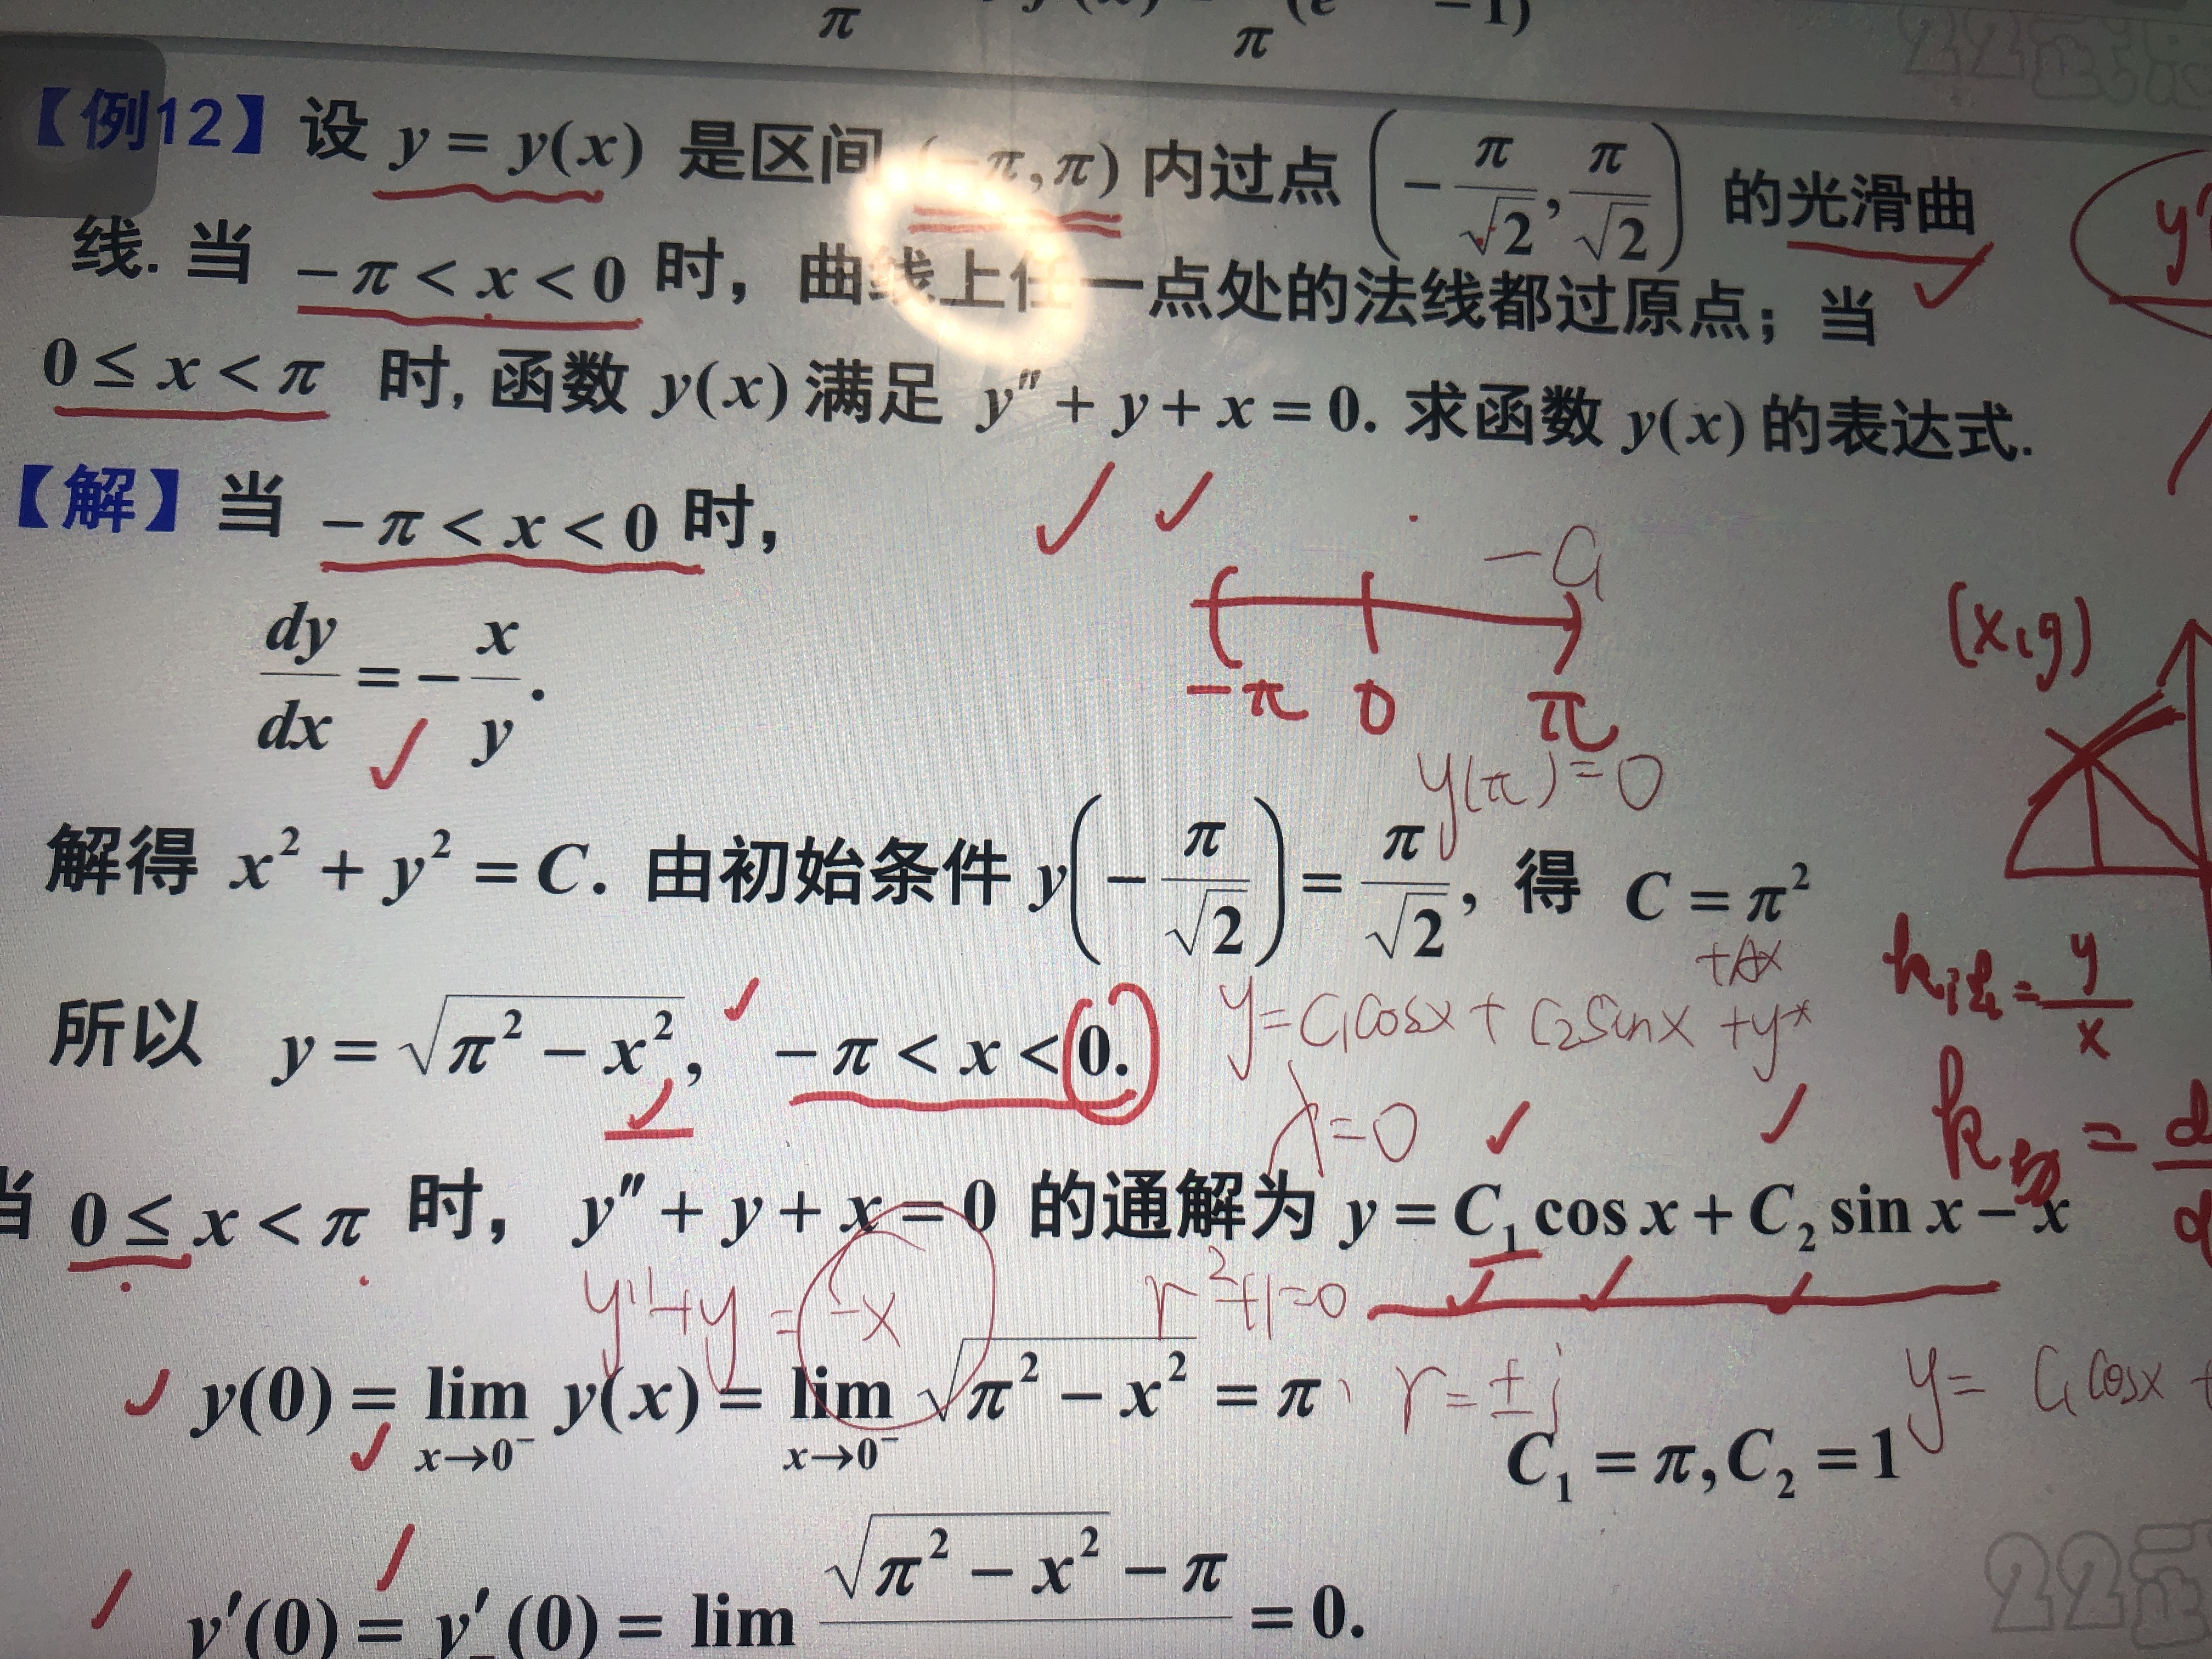 π π (e −1)
22
【例12】设 y = y(x) 是区间 (−π,π) 内过点 (−π/√2, π/√2) 的光滑曲
线. 当 −π < x < 0 时，曲线上任一点处的法线都过原点；当
0 ≤ x < π 时, 函数 y(x) 满足 y″ + y + x = 0. 求函数 y(x) 的表达式.
【解】当 −π < x < 0 时，
dy/dx = −x/y.
−π 0 π
(x,y)
y(π)=0
解得 x² + y² = C. 由初始条件 y(−π/√2) = π/√2, 得 C = π²
+Ax
y=C₁cosx+C₂sinx+y*
所以 y = √(π² − x²), −π < x < 0.
=y/x
λ=0
当 0 ≤ x < π 时， y″ + y + x = 0 的通解为 y = C₁ cos x + C₂ sin x − x
y″+y=−x
r²+1=0
y(0) = lim x→0⁻ y(x) = lim x→0⁻ √(π² − x²) = π
r=±i
y= C₁cosx +
C₁ = π, C₂ = 1
y′(0) = y′₋(0) = lim (√(π² − x²) − π) = 0.
22